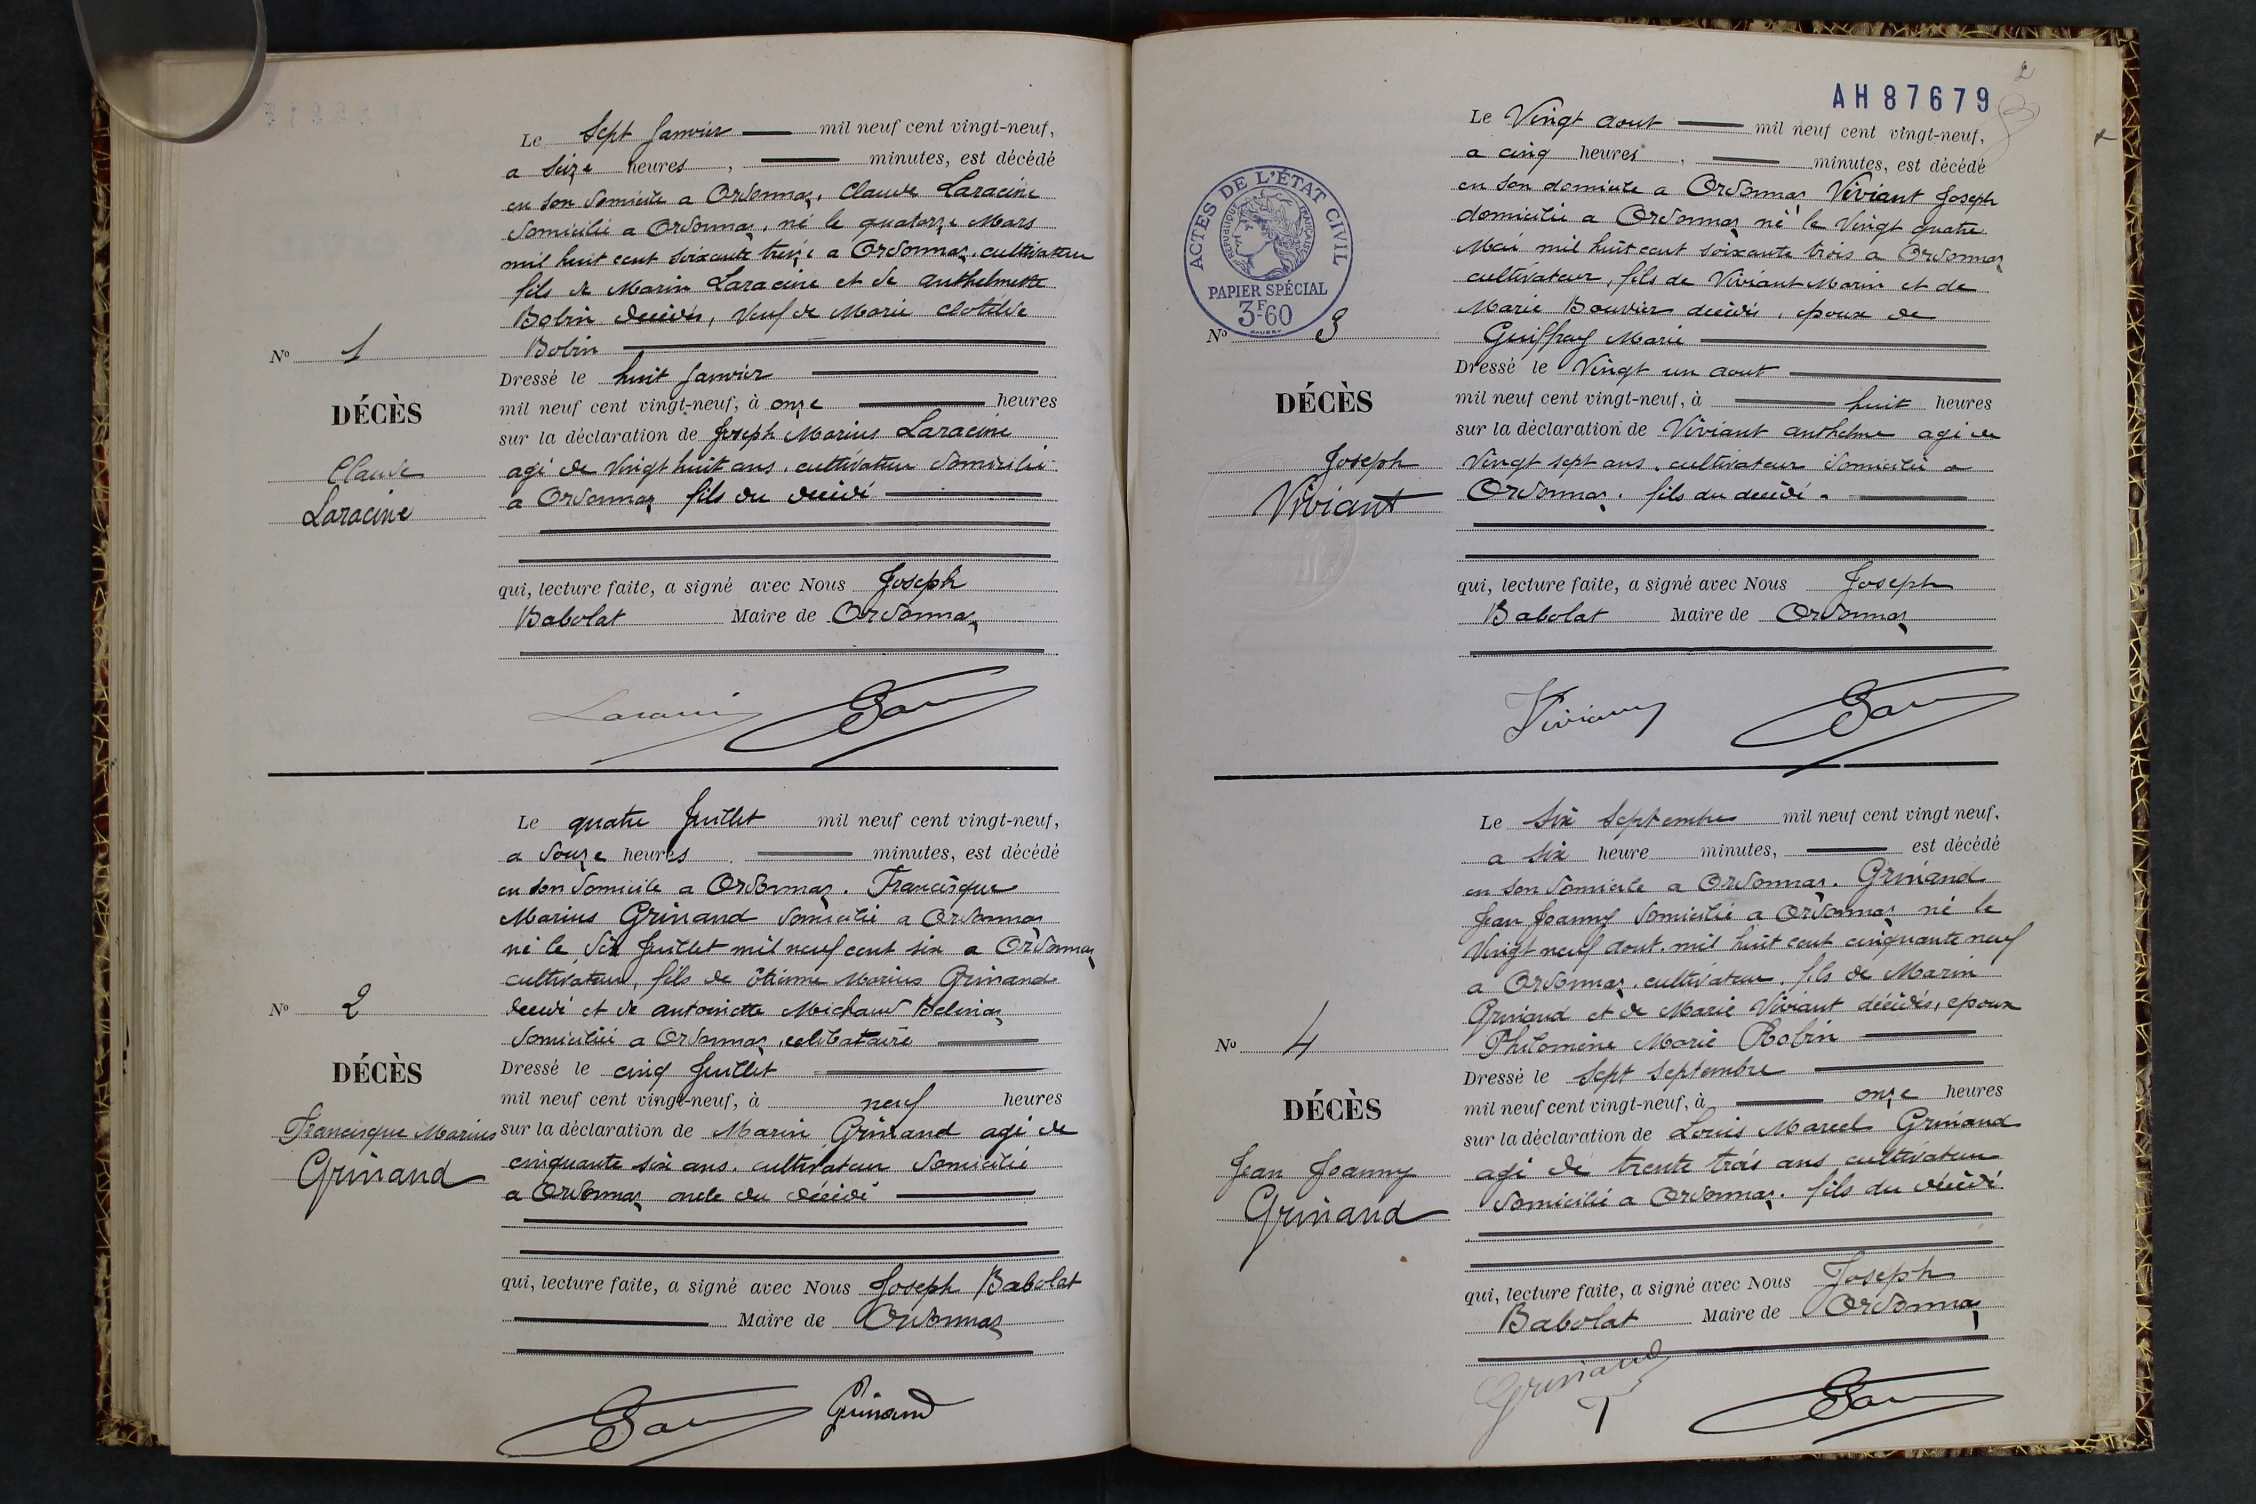 Le Sept Janvier mil neuf cent vingt-neuf,
a Seize heures, minutes, est décédé
en son domicile a Ordonnaz. Claude Laracine
domicilié a Ordonnaz, né le quatorze Mars
mil huit cent soixante treize a Ordonnaz. cultivateur
fils de Marin Laracine et de anthelmette
Bobin décédés, Veuf de Marie clotilde
Bobin
No 1
Dressé le huit Janvier
mil neuf cent vingt-neuf, à onze heures
DÉCÈS
sur la déclaration de Joseph Marius Laracine
Claude
agé de Vingt huit ans. cultivateur domicilié
Laracine
a Ordonnaz fils du décédé
qui, lecture faite, a signé avec Nous Joseph
Babolat Maire de Ordonnaz
Le quatre Juillet mil neuf cent vingt-neuf,
a douze heures. minutes, est décédé
en son domicile a Ordonnaz. Francisque
Marius Grinand domicilié a Ordonnaz
né le Juillet mil neuf cent six a Ordonnaz
cultivateur, fils de étienne Marius Grinand
décédé et de antoinette Michaud
No 2
domiciliée a Ordonnaz, celibataire
Dressé le cinq Juillet
DÉCÈS
mil neuf cent vingt-neuf, à neuf heures
Francisque Marius
sur la déclaration de Marin Grinand agé de
Grinand
cinquante six ans. cultivateur domicilié
a Ordonnaz oncle du décédé
qui, lecture faite, a signé avec Nous Joseph Babolat
Maire de Ordonnaz
Grinand
2
AH 87679
Le Vingt aout mil neuf cent vingt-neuf,
a cinq heures, minutes, est décédé
en son domicile a Ordonnaz Viviant Joseph
domicilié a Ordonnaz né le Vingt quatre
Mai mil huit cent soixante trois a Ordonnaz
cultivateur, fils de Viviant Marin et de
Marie Bouvier décédés, epoux de
Guiffray Marie
ACTES DE L'ÉTAT CIVIL
RÉPUBLIQUE FRANÇAISE
PAPIER SPÉCIAL
3F60
No 3
Dressé le Vingt un aout
mil neuf cent vingt-neuf, à huit heures
DÉCÈS
sur la déclaration de Viviant anthelme agé de
Joseph
Vingt sept ans. cultivateur domicilié a
Viviant
Ordonnaz. fils du décédé.
qui, lecture faite, a signé avec Nous Joseph
Babolat Maire de Ordonnaz
Le Six Septembre mil neuf cent vingt neuf.
a six heure minutes, est décédé
en son domicile a Ordonnaz. Grinand
Jean Joanny domicilié a Ordonnaz né le
Vingt neuf aout. mil huit cent cinquante neuf
a Ordonnaz, cultivateur. fils de Marin
Grinand et de Marie Viviant décédés, epoux
Philomène Marie
No 4
Dressé le Sept Septembre
mil neuf cent vingt-neuf, à onze heures
DÉCÈS
sur la déclaration de Louis Marcel Grinand
Jean Joanny
agé de trente trois ans cultivateur
Grinand
domicilié a Ordonnaz. fils du décédé
qui, lecture faite, a signé avec Nous Joseph
Babolat Maire de Ordonnaz
Grinand